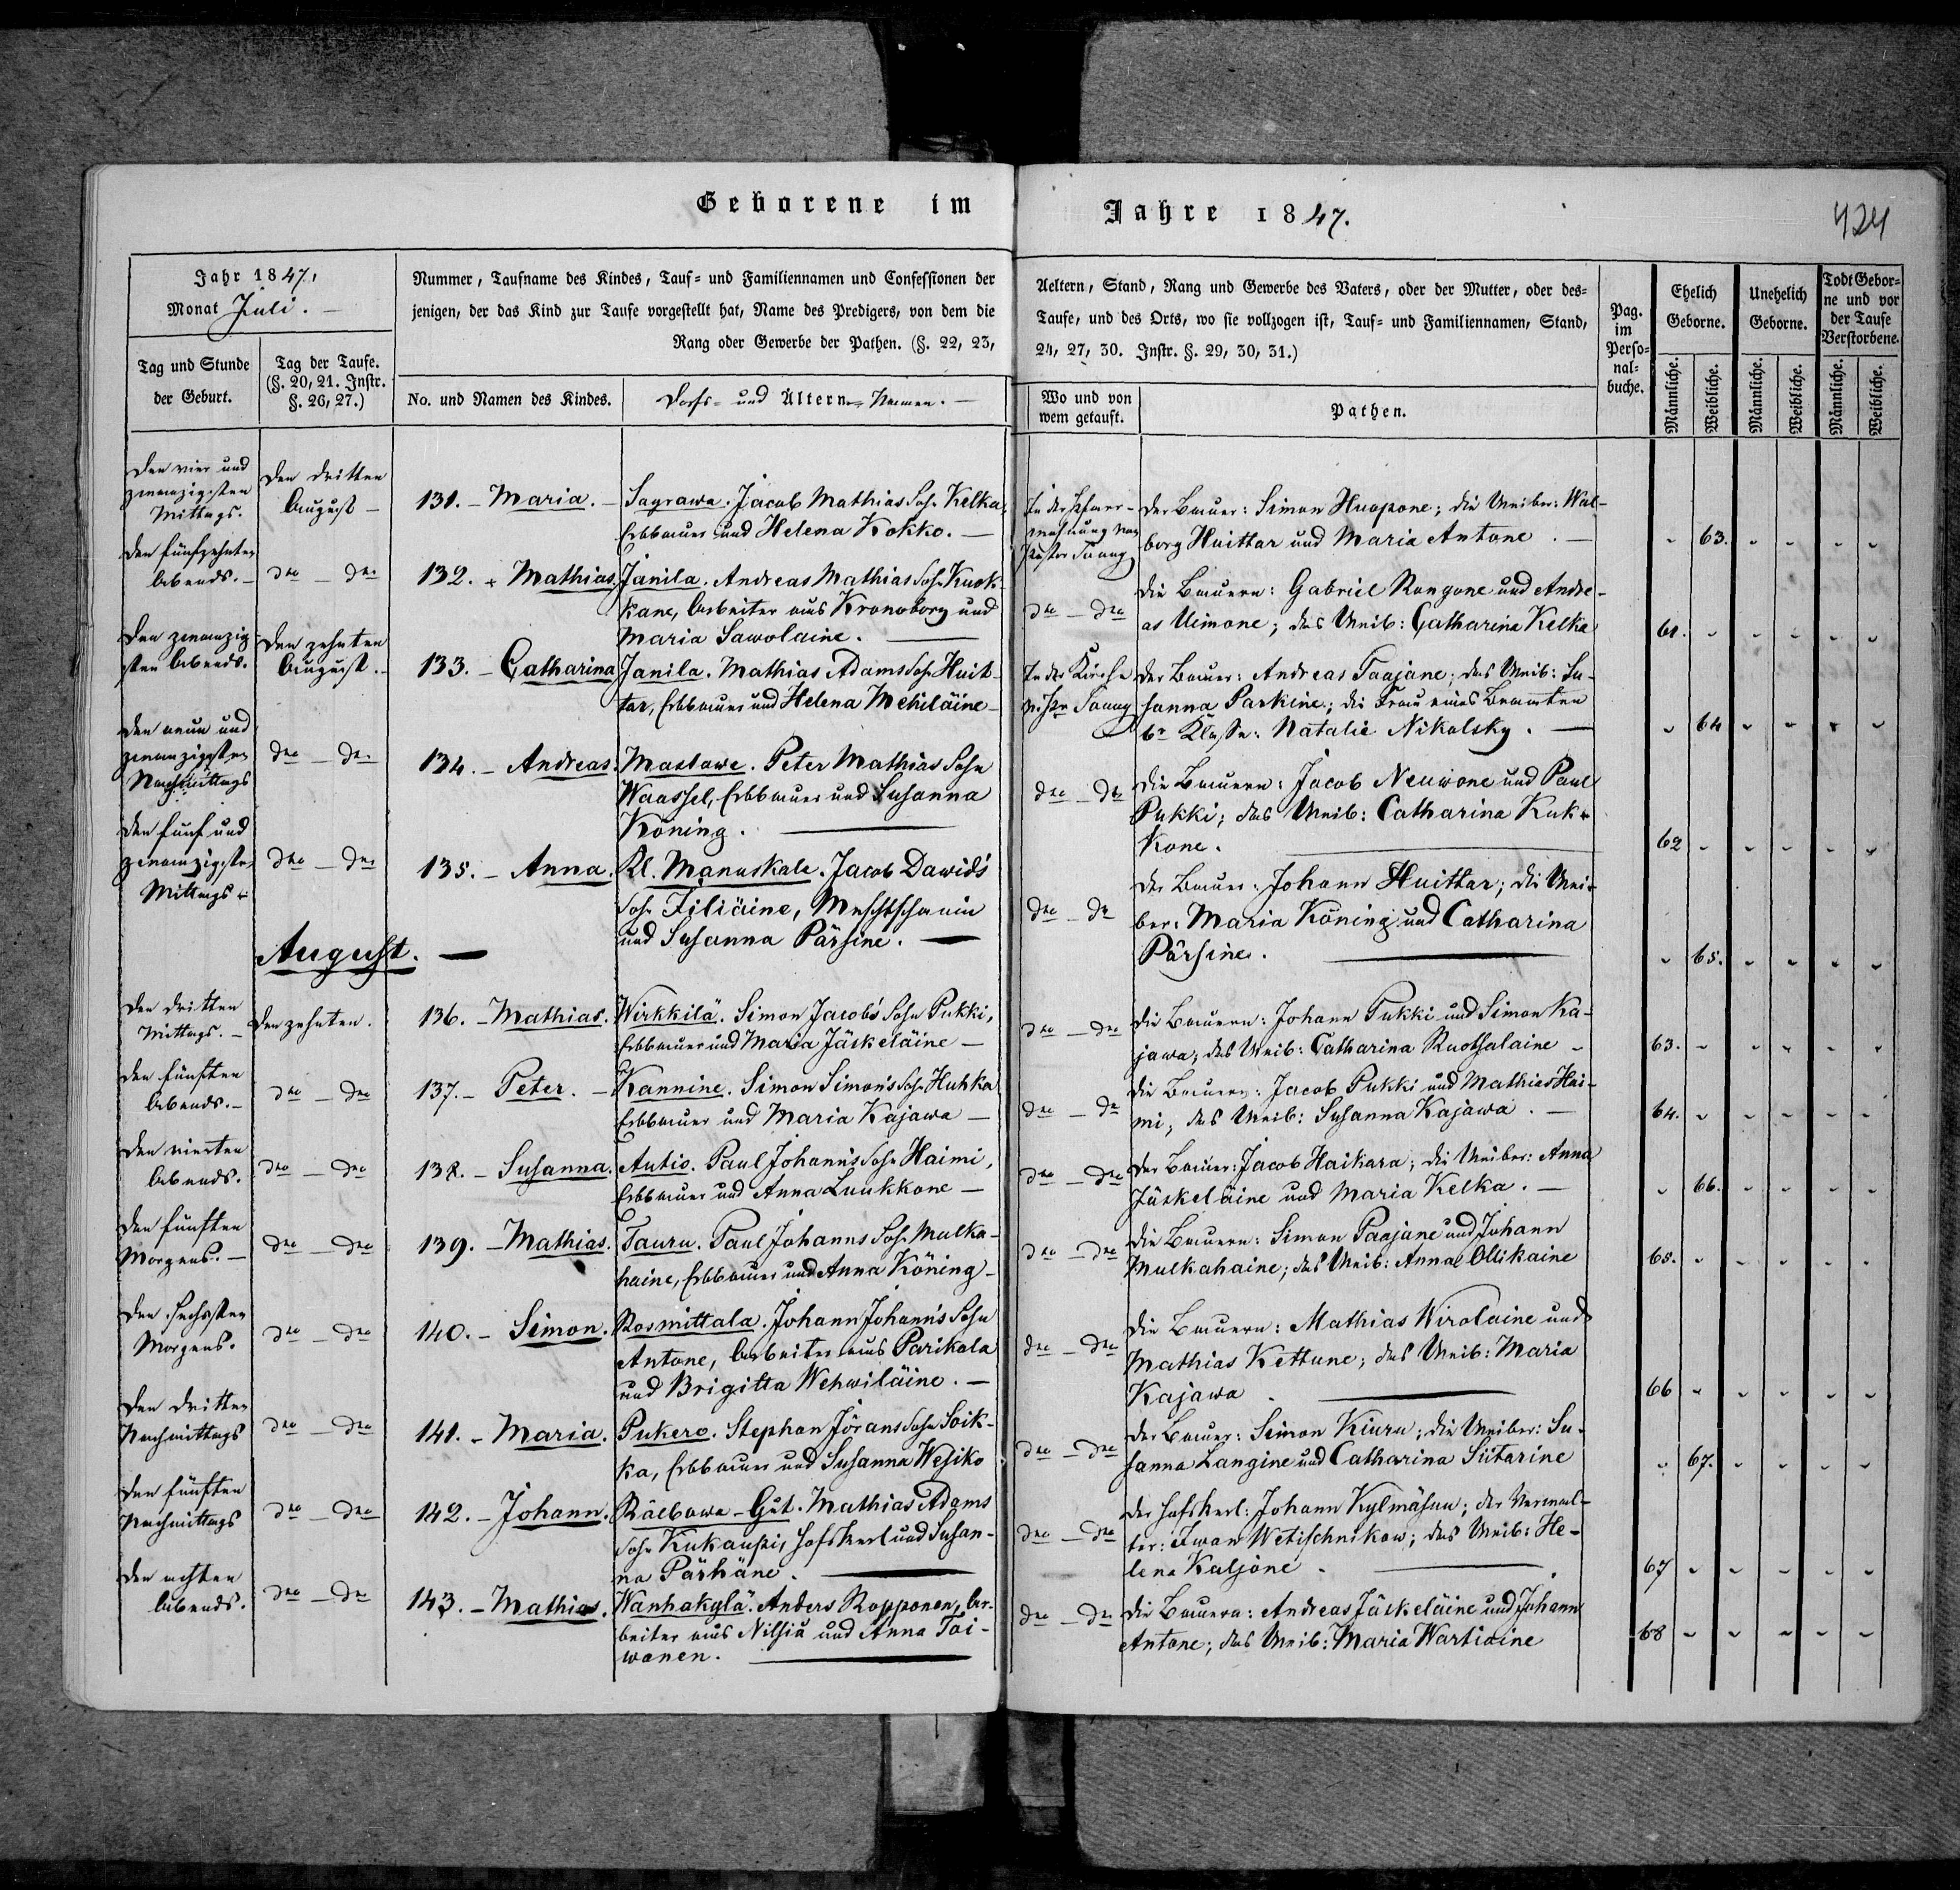 Geborene im Jahre 1847.
424
Jahr 1847,
Monat Juli. –
Tag und Stunde
der Geburt.
Tag der Taufe.
(§. 20, 21. Instr.
§. 26, 27.)
Nummer, Taufname des Kindes, Tauf- und Familiennamen und Confessionen der
jenigen, der das Kind zur Taufe vorgestellt hat, Name des Predigers, von dem die
Rang oder Gewerbe der Pathen. (§. 22, 23,
No. und Namen des Kindes.
Dorfs- und Ältern Namen. –
Aeltern, Stand, Rang und Gewerbe des Vaters, oder der Mutter, oder des-
Taufe, und des Orts, wo sie vollzogen ist, Tauf- und Familiennamen, Stand,
24, 27, 30. Instr. §. 29, 30, 31.)
Wo und von
wem getauft.
Pathen.
Pag.
im
Perso-
nal-
buche.
Ehelich
Geborne.
Unehelich
Geborne.
Todt Gebor-
ne und vor
der Taufe
Verstorbene.
Männliche.
Weibliche.
Männliche.
Weibliche.
Männliche.
Weibliche.
Den vier und
zwanzigsten
Mittags.
Den dritten
August –
131. – Maria. –
Sayrawa. Jacob Mathias Sohn Kelka,
Erbbauer und Helena Kokko. –
In der Pfarr-
wohnung von
Pastor
Der Bauer: Simon Huopone; die Weiber: Wal-
borg Huittar und Maria Antone. –
63.
Den fünfzehnten
Abends. –
dto – dto
132. – Mathias.
Janila. Andreas Mathias Sohn Kuok-
kane, Arbeiter aus Kronoborg und
Maria Sawolaine. –
dto – dto
Die Bauern: Gabriel Rongone und Andre-
as Uimone; das Weib: Catharina Kelka
61.
Den zwanzig
sten Abends.
Den zehnten
August. –
133. – Catharina
Janila. Mathias Adams Sohn Huit-
tar, Erbbauer und Helena Mehiläine –
In der Kirche
Der Bauer: Andreas Taajane; das Weib: Su-
sanna Parkine; die Frau eines Beamten
6r Klasse: Natalie Nikolsky. –
64
Den neun und
zwanzigsten
Nachmittags
dto – dto
134. – Andreas.
Maslowe. Peter Mathias Sohn
Waassel, Erbbauer und Susanna
Köning. –
dto – dto
Die Bauern: Jacob Neuwone und Paul
Pukki; das Weib: Catharina Kuk-
kone. –
62
Den fünf und
zwanzigsten
Mittags –
dto – dto
135. – Anna.
Kl. Manuskala. Jacob Dawid's
Sohn Filiäine, Meschtschanin
und Susanna Pärsine. –
dto – dto
Der Bauer: Johann Huittar; die Wei-
ber: Maria Köning und Catharina
Pärsine. –
65.
August. –
Den dritten
Mittags. –
Den zehnten.
136. – Mathias.
Wirkkilä. Simon Jacob's Sohn Pukki,
Erbbauer und Maria Jäskeläine –
dto – dto
Die Bauern: Johann Pukki und Simon Ka-
jawa; das Weib: Catharina Ruotsalaine –
63.
Den fünften
Abends. –
dto – dto
137. – Peter. –
Kannine. Simon Simon's Sohn Huhka
Erbbauer und Maria Kajawa –
dto – dto
Die Bauern: Jacob Pukki und Mathias Hai-
mi; das Weib: Susanna Kajawa. –
64.
Den vierten
Abends.
dto – dto
138. – Susanna.
Autio. Paul Johann's Sohn Haimi,
Erbbauer und Anna Luukkone –
dto – dto
Der Bauer: Jacob Haikara; die Weiber: Anna
Jäskeläine und Maria Kelka. –
66.
Den fünften
Morgens. –
dto – dto
139. – Mathias.
Tauru. Paul Johanns Sohn Mulka-
haine, Erbbauer und Anna Köning –
dto – dto
Die Bauern: Simon Paajane und Johann
Mulkahaine; das Weib: Anna Ollikaine
65.
Den sechsten
Morgens.
dto – dto
140. – Simon.
Rosmittala. Johann Johann's Sohn
Antone, Arbeiter aus Parikala
und Brigitta Wehwiläine. –
dto – dto
Die Bauern: Mathias Wirolaine und
Mathias Kettune; das Weib: Maria
Kajawa. –
66
Den dritten
Nachmittags
dto – dto
141. – Maria.
Pukero. Stephan Jörans Sohn Soik-
ka, Erbbauer und Susanna Wesiko
dto – dto
Der Bauer: Simon Kiuru; die Weiber: Su-
sanna Langine und Catharina Siitarine
67.
Den fünften
Nachmittags
dto – dto
142. – Johann.
Rälbowa-Gut. Mathias Adams
Sohn Kukauski, Hofskerl und Susan-
na Pärhäne. –
dto – dto
Der Hofskerl: Johann Kylmäsuu; der Verwal-
ter: Iwan Wetischnikow; das Weib: He-
lena Kaljöne. –
67
Den achten
Abends.
dto – dto
143. – Mathias.
Wanhakylä. Anders Ropponen, Ar-
beiter aus Nilsiä und Anna Toi-
wanen. –
dto – dto
Die Bauern: Andreas Jäskeläine und Johann
Antone; das Weib: Maria Wartiaine
68